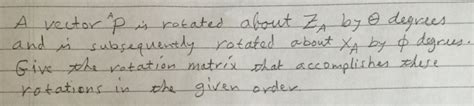 A vector ᴬP is rotated about Z_A by θ degrees
and is subsequently rotated about X_A by ϕ degrees.
Give the rotation matrix that accomplishes these
rotations in the given order.